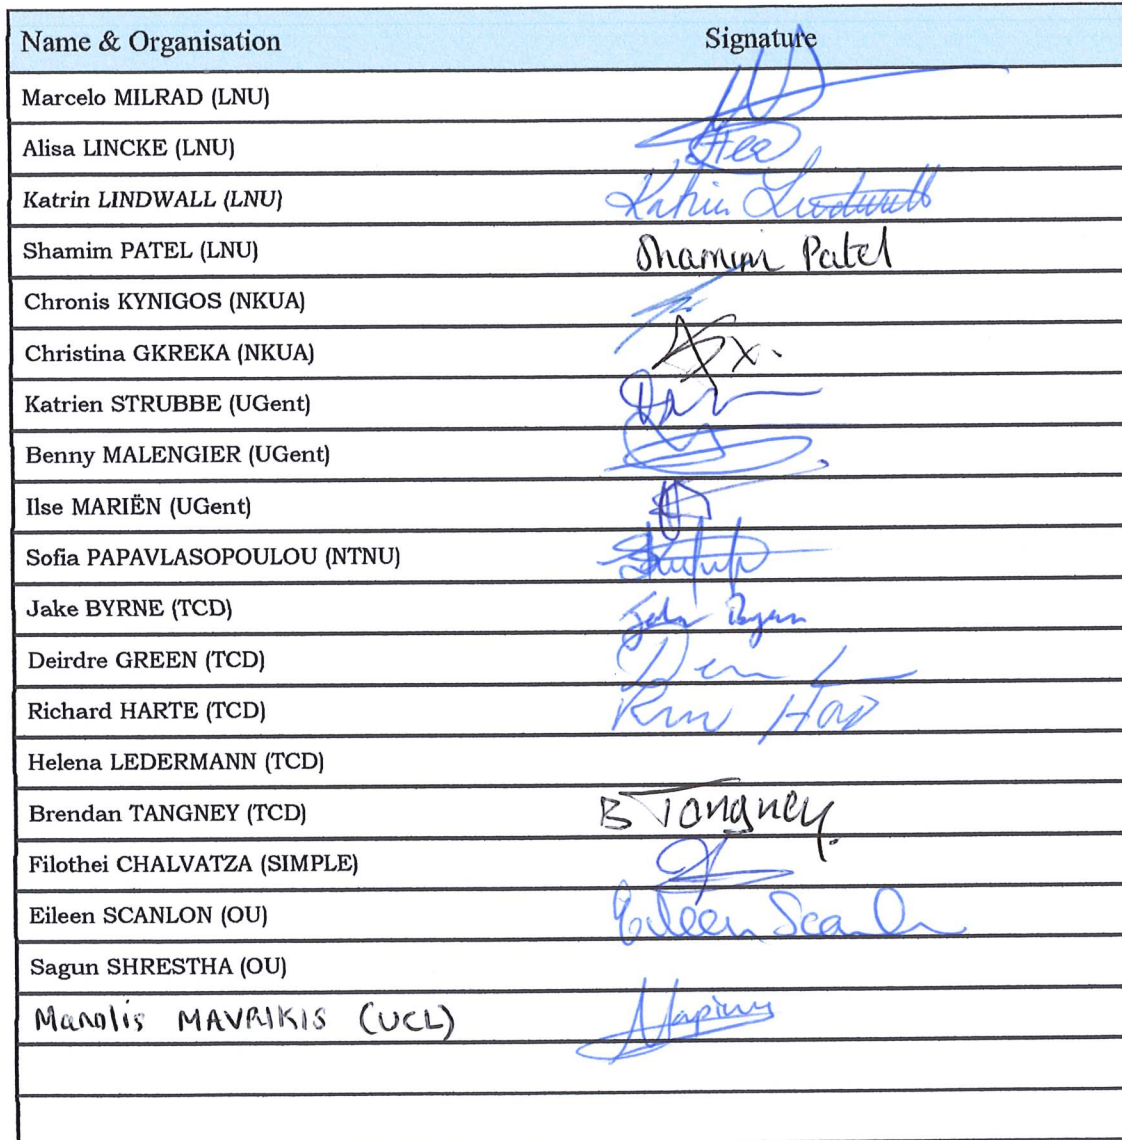 Name & Organisation Signature
Marcelo MILRAD (LNU)
Alisa LINCKE (LNU)
Katrin LINDWALL (LNU) Katrin Lindwall
Shamim PATEL (LNU) Shamim Patel
Chronis KYNIGOS (NKUA)
Christina GKREKA (NKUA)
Katrien STRUBBE (UGent)
Benny MALENGIER (UGent)
Ilse MARIËN (UGent)
Sofia PAPAVLASOPOULOU (NTNU)
Jake BYRNE (TCD)
Deirdre GREEN (TCD)
Richard HARTE (TCD)
Helena LEDERMANN (TCD)
Brendan TANGNEY (TCD) B Tangney
Filothei CHALVATZA (SIMPLE)
Eileen SCANLON (OU) Eileen Scanlon
Sagun SHRESTHA (OU)
Manolis MAVRIKIS (UCL)